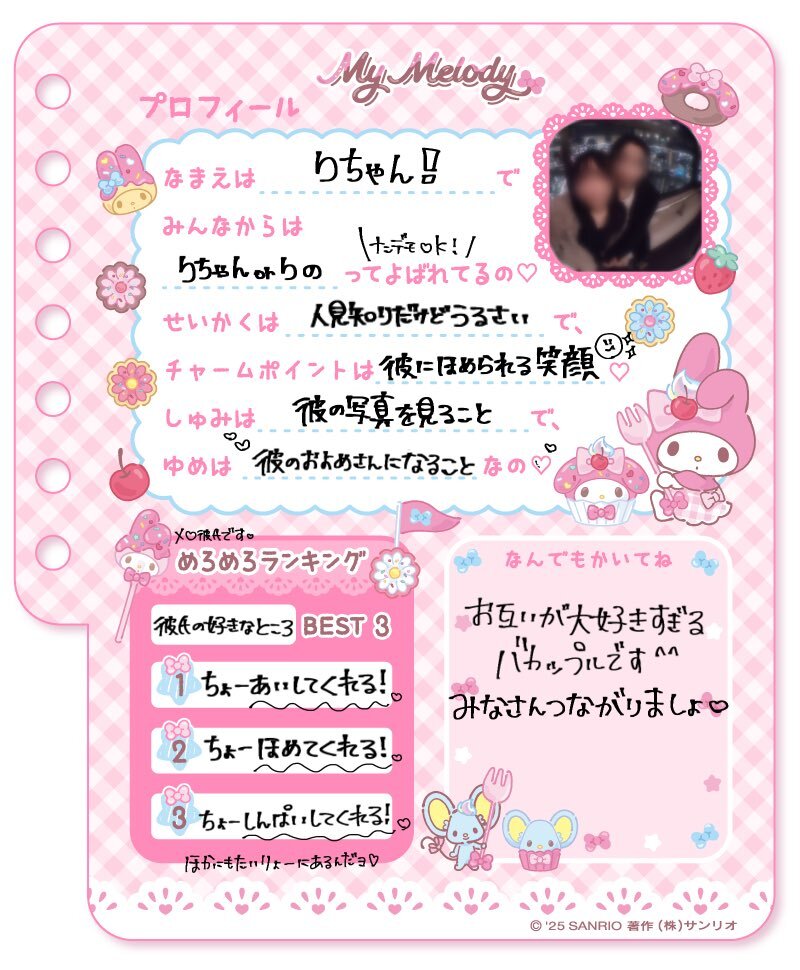 My Melody
プロフィール
なまえは りちゃん!! で
みんなからは
\ナンデモ♡K!/
りちゃん or りの ってよばれてるの♡
せいかくは 人見知りだけどうるさい で、
チャームポイントは 彼にほめられる笑顔 ♡
しゅみは 彼の写真を見ること で、
ゆめは 彼のおよめさんになること なの♡
※♡彼氏です♥
めろめろランキング
彼氏の好きなところ BEST 3
1 ちょーあいしてくれる!♡
2 ちょーほめてくれる!♡
3 ちょーしんぱいしてくれる!♡
ほかにもたいりょーにあるんだヨ♡
なんでもかいてね
お互いが大好きすぎる
バカップルです^^
みなさんつながりましょ♡
© '25 SANRIO 著作(株)サンリオ